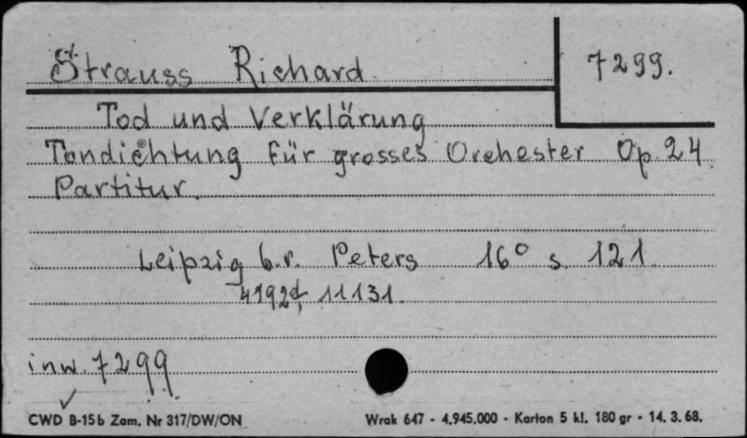 Strauss Richard 7299.
Tod und Verklärung
Tondichtung für grosses Orchester Op. 24
Partitur.
Leipzig b.r. Peters 16° s. 121
11131.
inw. 7299
CWD B-15b Zam. Nr 317/DW/ON Wrak 647 - 4.945.000 - Karton 5 kl. 180 gr - 14. 3. 68.